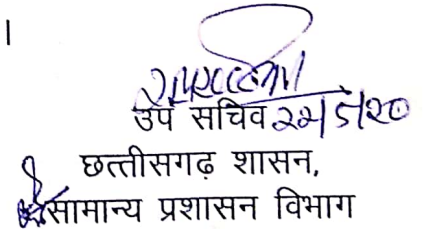 ।
उप सचिव
छत्तीसगढ़ शासन,
सामान्य प्रशासन विभाग